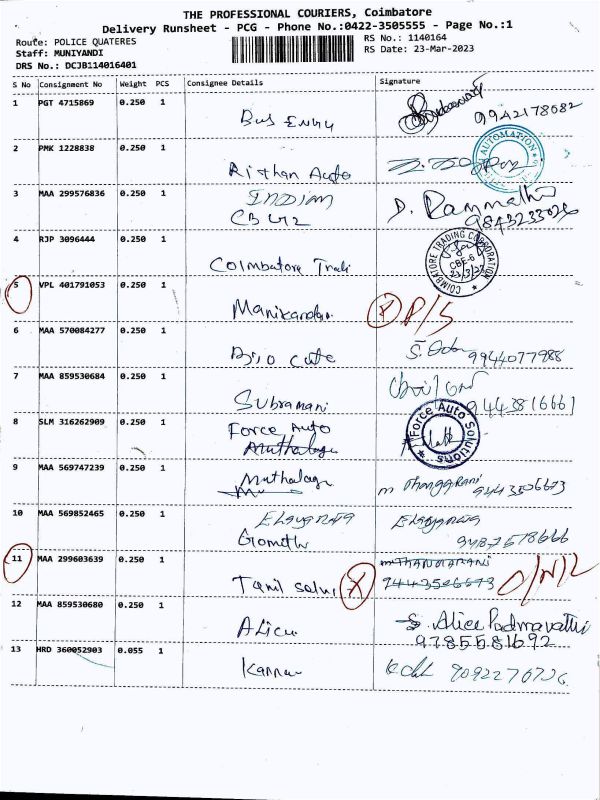 THE PROFESSIONAL COURIERS, Coimbatore
Delivery Runsheet - PCG - Phone No.:0422-3505555 - Page No.:1
Route: POLICE QUATERES
RS No.: 1140164
Staff: MUNIYANDI
RS Date: 23-Mar-2023
DRS No.: DCJB114016401
S No Consignment No Weight PCS Consignee Details Signature
1 PGT 4715869 0.250 1
9942178082
2 PMK 1228838 0.250 1 Risthan Auto
AUTOMATION
3 MAA 299576836 0.250 1 INDIAN
D. Rammathi
9843233026
4 RJP 3096444 0.250 1 Coimbatore Tradi
COIMBATORE TRADING CORPORATION
CBE-6
23/3/23
5 VPL 401791053 0.250 1 Manikandan X P/S
6 MAA 570084277 0.250 1 9944077988
7 MAA 859530684 0.250 1 Subramani
9443816661
8 SLM 316262909 0.250 1 Force Auto
Muthalagu
Force Auto Solutions
9 MAA 569747239 0.250 1 Muthalagu
m Thangarani 9443506673
10 MAA 569852465 0.250 1 Elayaraja Elayaraja
Gomathi 9487578666
11 MAA 299603639 0.250 1 Tamil selvi X O/N/L
9443506673
12 MAA 859530680 0.250 1 Alice
S. Alice Padmavathi
9785581692
13 HRD 360052903 0.055 1 Kannan
9092270726